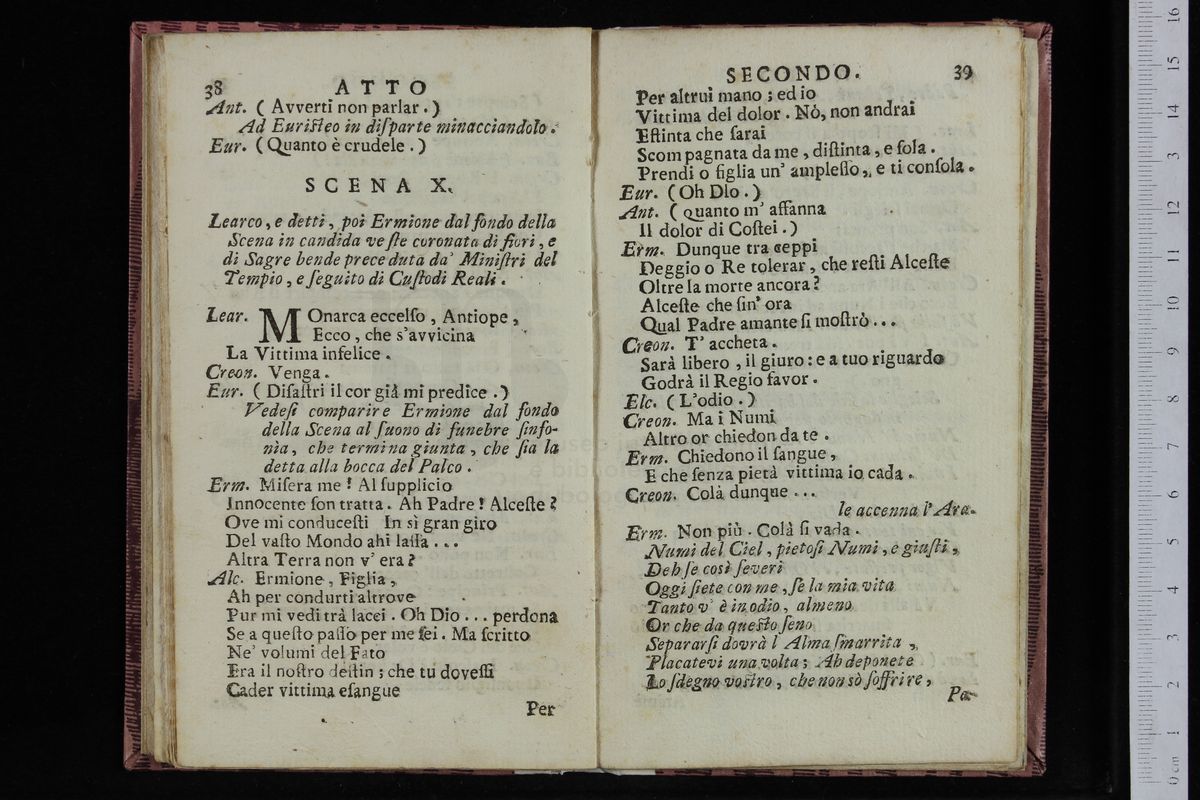 38 ATTO
Ant. ( Avverti non parlar . )
Ad Euriſteo in diſparte minacciandolo .
Eur. ( Quanto è crudele . )
SCENA X.
Learco , e detti , poi Ermione dal fondo della
Scena in candida veſte coronata di fiori , e
di Sagre bende preceduta da' Miniſtri del
Tempio , e ſeguito di Cuſtodi Reali .
Lear. MOnarca eccelſo , Antiope ,
Ecco , che s'avvicina
La Vittima infelice .
Creon. Venga .
Eur. ( Diſaſtri il cor già mi predice . )
Vedeſi comparire Ermione dal fondo
della Scena al ſuono di funebre ſinfo-
nìa , che termina giunta , che ſia la
detta alla bocca del Palco .
Erm. Miſera me ! Al ſupplicio
Innocente ſon tratta . Ah Padre ! Alceſte ?
Ove mi conduceſti In sì gran giro
Del vaſto Mondo ahi laſſa . . .
Altra Terra non v' era ?
Alc. Ermione , Figlia ,
Ah per condurti altrove
Pur mi vedi trà lacci . Oh Dio . . . perdona
Se a queſto paſſo per me ſei . Ma ſcritto
Ne' volumi del Fato
Era il noſtro deſtin ; che tu doveſſi
Cader vittima eſangue
Per
SECONDO. 39
Per altrui mano ; ed io
Vittima del dolor . Nò, non andrai
Eſtinta che ſarai
Scompagnata da me , diſtinta , e ſola .
Prendi o figlia un' ampleſſo , e ti conſola .
Eur. ( Oh Dio . )
Ant. ( quanto m' affanna
Il dolor di Coſtei . )
Erm. Dunque tra ceppi
Deggio o Re tolerar , che reſti Alceſte
Oltre la morte ancora ?
Alceſte che ſin' ora
Qual Padre amante ſi moſtrò . . .
Creon. T' accheta .
Sarà libero , il giuro : e a tuo riguardo
Godrà il Regio favor .
Elc. ( L'odio . )
Creon. Ma i Numi
Altro or chiedon da te .
Erm. Chiedono il ſangue ,
E che ſenza pietà vittima io cada .
Creon. Colà dunque . . .
le accenna l' Ara.
Erm. Non più . Colà ſi vada .
Numi del Ciel , pietoſi Numi , e giuſti ,
Deh ſe così ſeveri
Oggi ſiete con me , ſe la mia vita
Tanto v' è in odio , almeno
Or che da queſto ſeno
Separarſi dovrà l' Alma ſmarrita ,
Placatevi una volta ; Ah deponete
Lo ſdegno voſtro , che non sò ſoffrire ,
Pa-